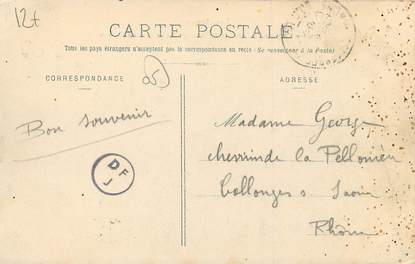 12t
CARTE POSTALE
Tous les pays étrangers n'acceptent pas la correspondance au recto (Se renseigner à la Poste)
CORRESPONDANCE
05
ADRESSE
Bon souvenir
Madame George
de la
Collonges s Saone
Rhône
D F
J